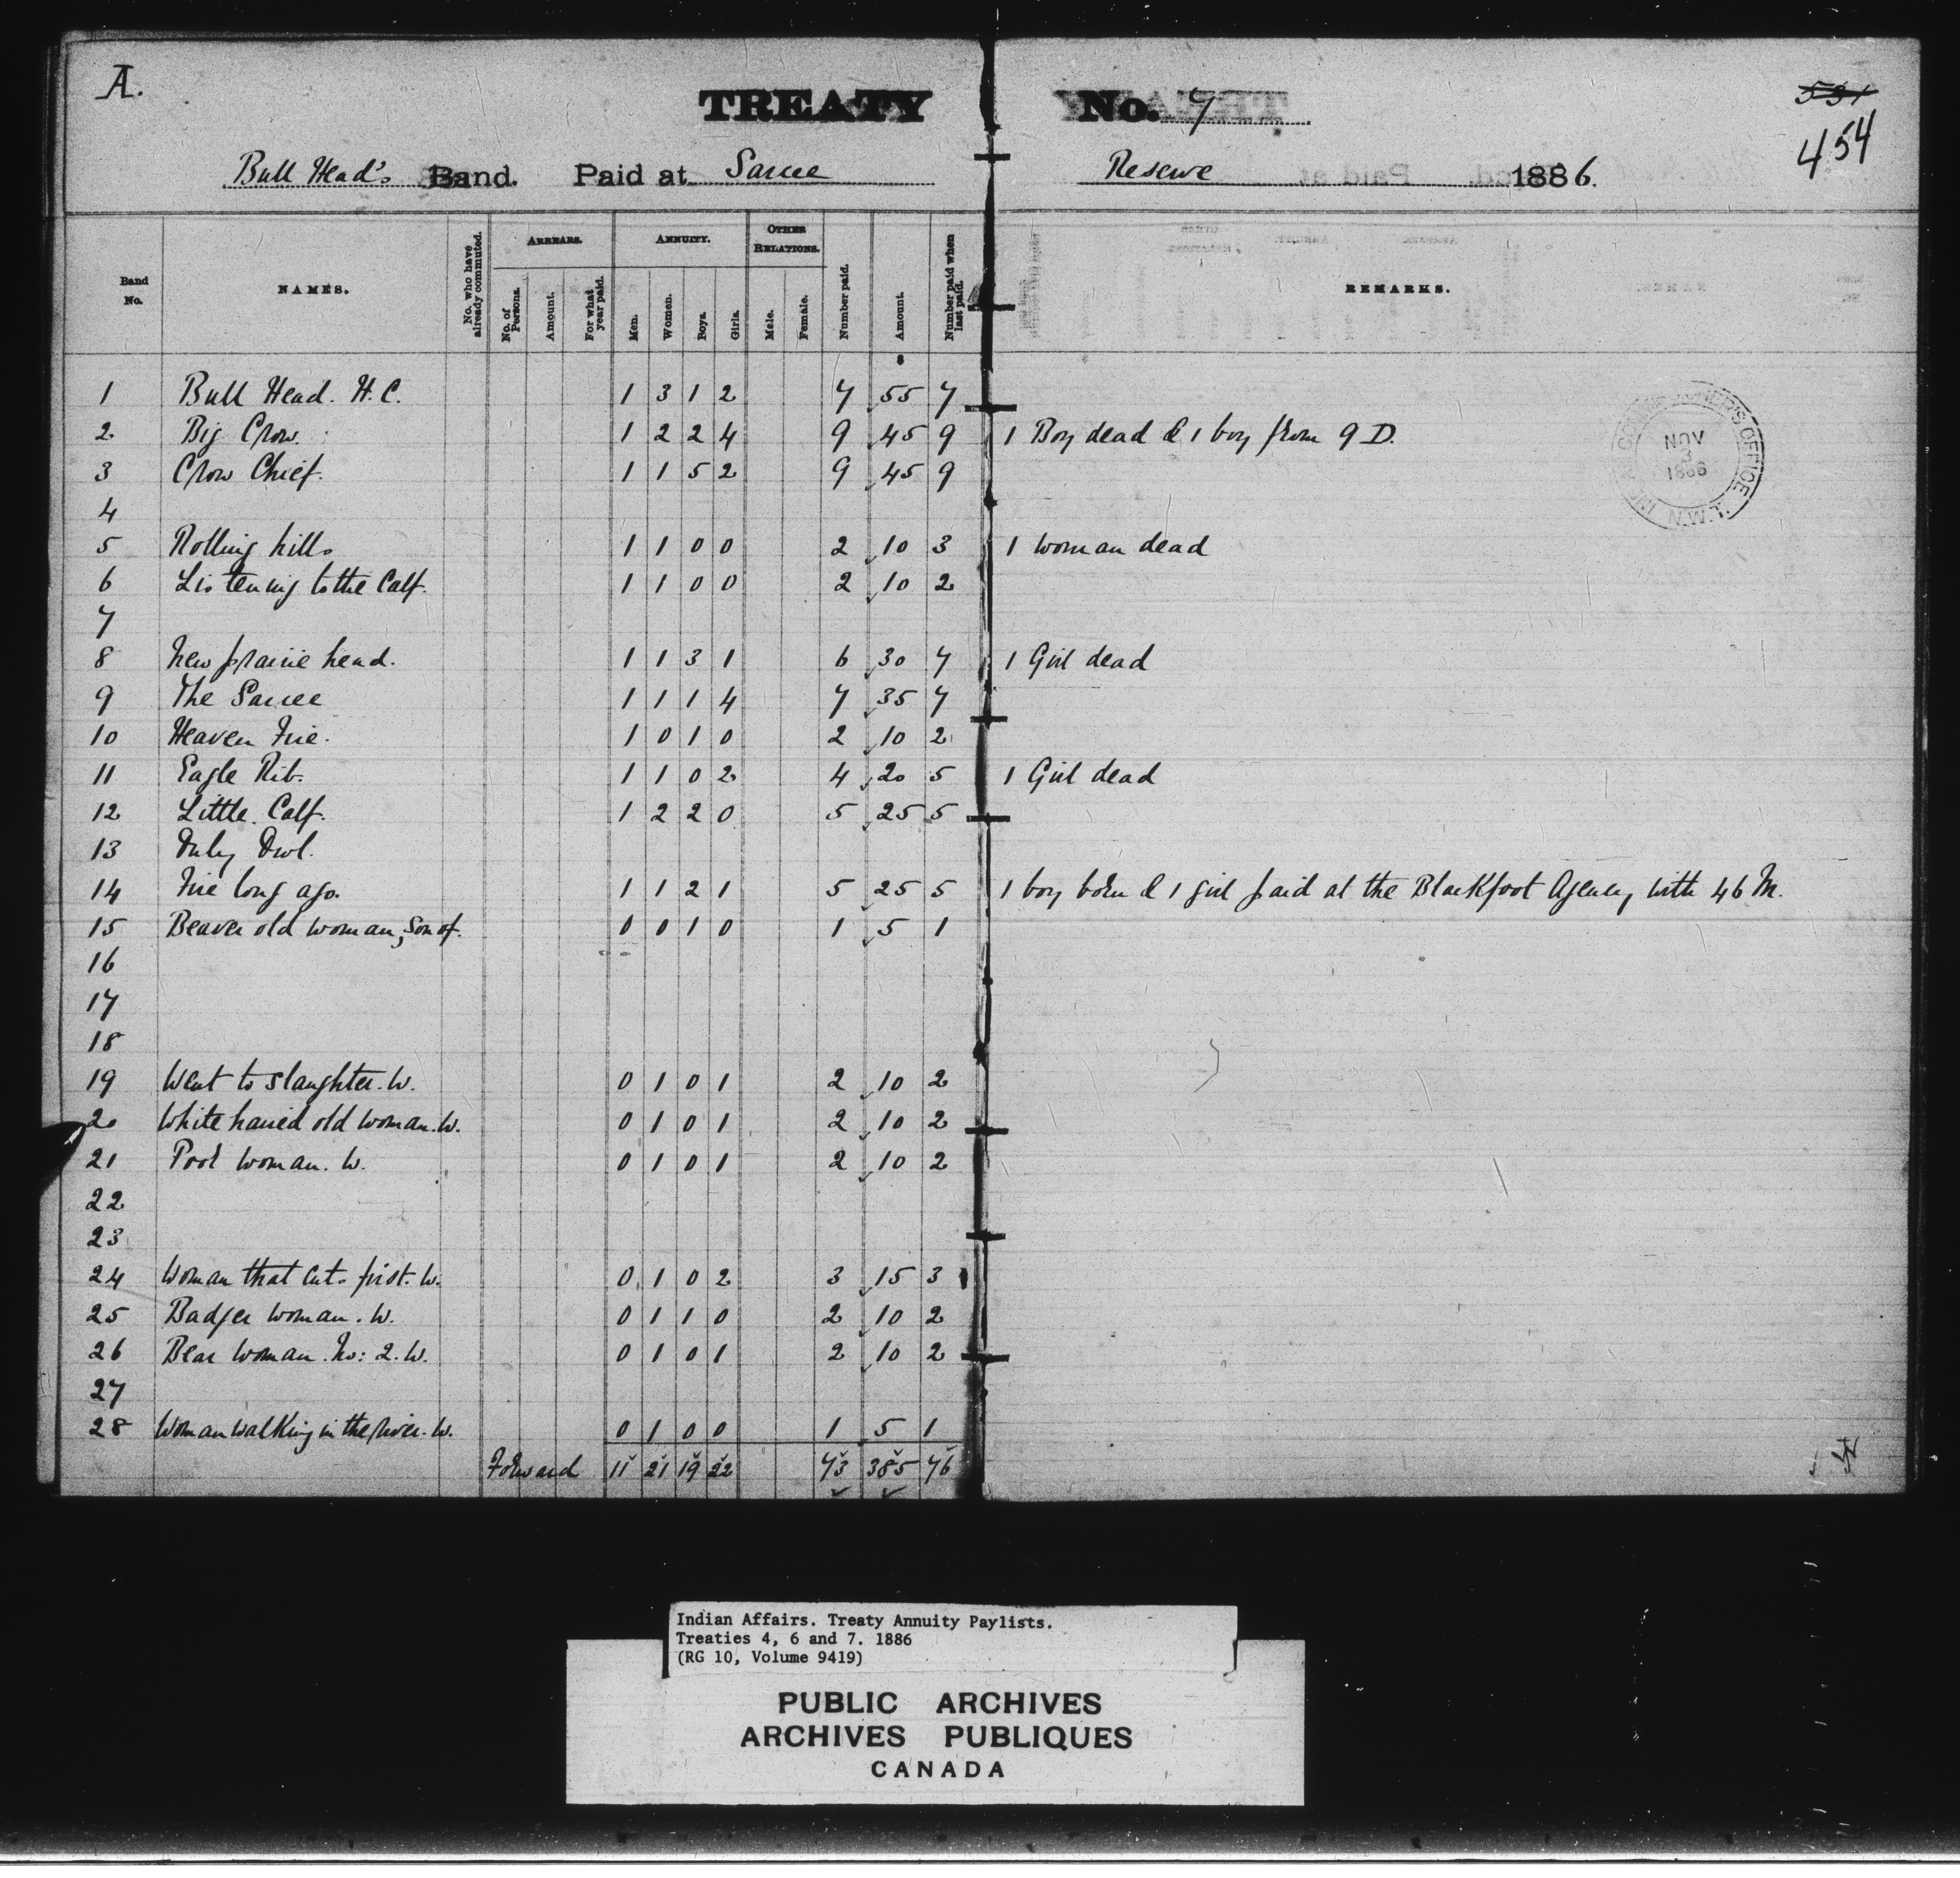 A.
TREATY No. 7
531
454
Bull Head's Band. Paid at Sarcee Reserve 1886.
Band No.
NAMES.
No. who have already commuted.
ARREARS.
No. of Persons.
Amount.
For what year paid.
ANNUITY.
Men.
Women.
Boys.
Girls.
OTHER RELATIONS.
Male.
Female.
Number paid.
Amount.
Number paid when last paid.
REMARKS.
1 Bull Head. H.C. 1 3 1 2 7 55 7
2 Big Crow. 1 2 2 4 9 45 9 1 Boy dead & 1 boy from 9 D.
3 Crow Chief. 1 1 5 2 9 45 9
4
5 Rolling hills 1 1 0 0 2 10 3 1 woman dead
6 Listening to the Calf. 1 1 0 0 2 10 2
7
8 New prairie head. 1 1 3 1 6 30 7 1 Girl dead
9 The Sarcee 1 1 1 4 7 35 7
10 Heaven Fire. 1 0 1 0 2 10 2
11 Eagle Rib. 1 1 0 2 4 20 5 1 Girl dead
12 Little Calf. 1 2 2 0 5 25 5
13 Owl.
14 Fire long ago. 1 1 2 1 5 25 5 1 boy born & 1 girl paid at the Blackfoot Agency with 46 M.
15 Beaver old woman, Son of. 0 0 1 0 1 5 1
16
17
18
19 Went to slaughter. W. 0 1 0 1 2 10 2
20 White haired old woman. W. 0 1 0 1 2 10 2
21 Poor woman. W. 0 1 0 1 2 10 2
22
23
24 Woman that cuts first. W. 0 1 0 2 3 15 3
25 Badger woman. W. 0 1 1 0 2 10 2
26 Bear woman. No: 2. W. 0 1 0 1 2 10 2
27
28 Woman walking in the river. W. 0 1 0 0 1 5 1
Forward 11 21 19 22 73 385 76
NOV
3
1886
N.W.T.
Indian Affairs. Treaty Annuity Paylists.
Treaties 4, 6 and 7. 1886
(RG 10, Volume 9419)
PUBLIC ARCHIVES
ARCHIVES PUBLIQUES
CANADA